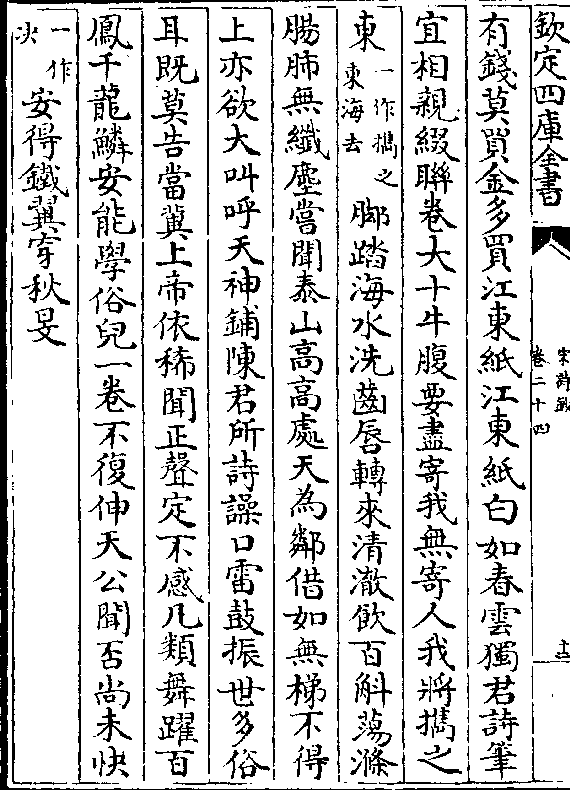 欽定四庫全書
宋詩鈔
卷二十四
十二
有錢莫買金多買江東紙江東紙白如春雲獨君詩筆
宜相親綴聯卷大十牛腹要盡寄我無寄人我將擕之
東一作擕之東海去脚踏海水洗齒唇轉來清澈飲百斛蕩滌
腸肺無纖塵嘗聞泰山高高處天為鄰借如無梯不得
上亦欲大叫呼天神鋪陳君所詩譟口雷鼓振世多俗
耳既莫告當冀上帝依稀聞正聲定不感凡類舞躍百
鳳千龍鱗安能學俗兒一卷不復伸天公聞否尚未快
一作決安得鐵翼穿秋旻